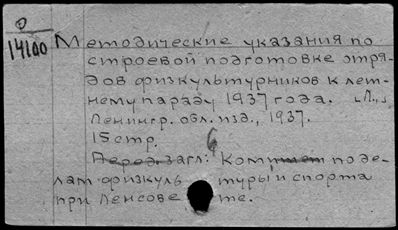 0
14100
Методические указания по
строевой подготовке отря-
дов физкультурников к лет-
нему параду 1937 года. Л.,
Ленингр. обл. изд., 1937.
15 стр.
Перед загл: Комитет по де-
лам физкультуры и спорта
при Ленсовете.